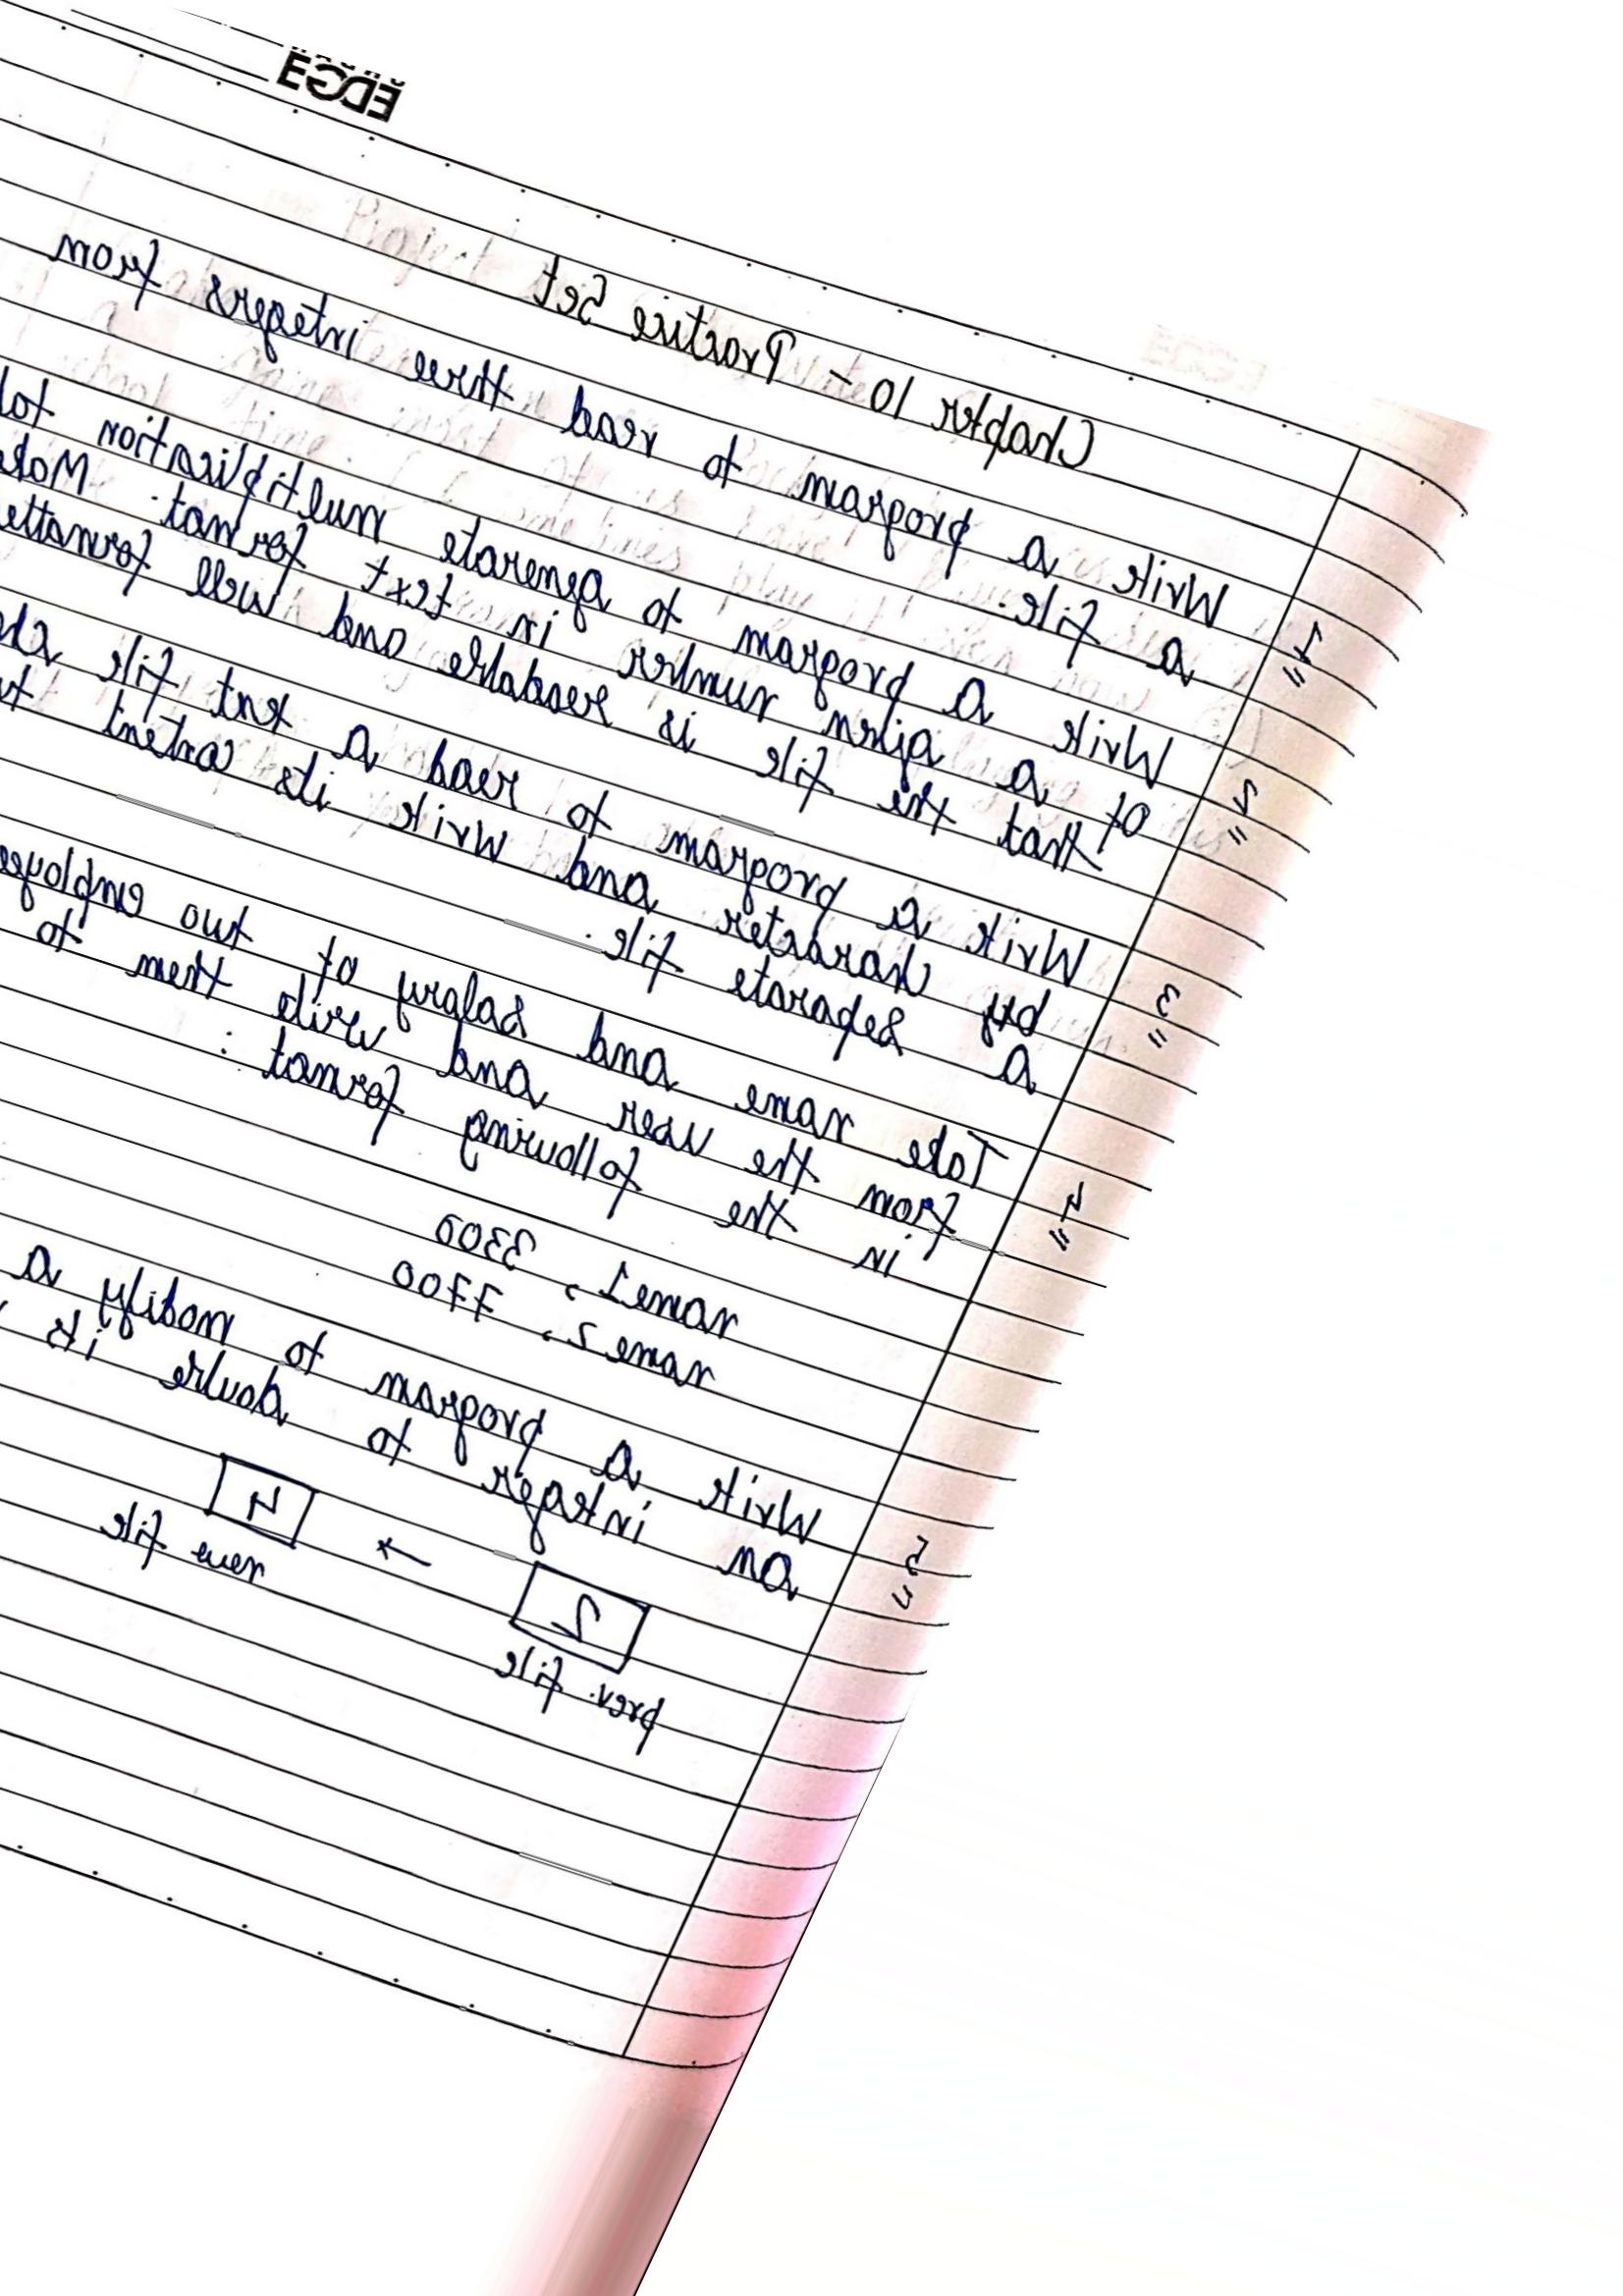 EDGE
Chapter 10 - Practice Set
1 Write a program to read three integers from
a file.
2 Write a program to generate multiplication
of a given number in text format. Make
that the file is readable and well
3 Write a program to read a text file
by character and write its content
a separate file.
4 Take name and salary of two
from the user and write them to
in the following format:
name1, 3300
name2, 7700
5 Write a program to modify a
an integer to double its
2 → 4
prev. file new file